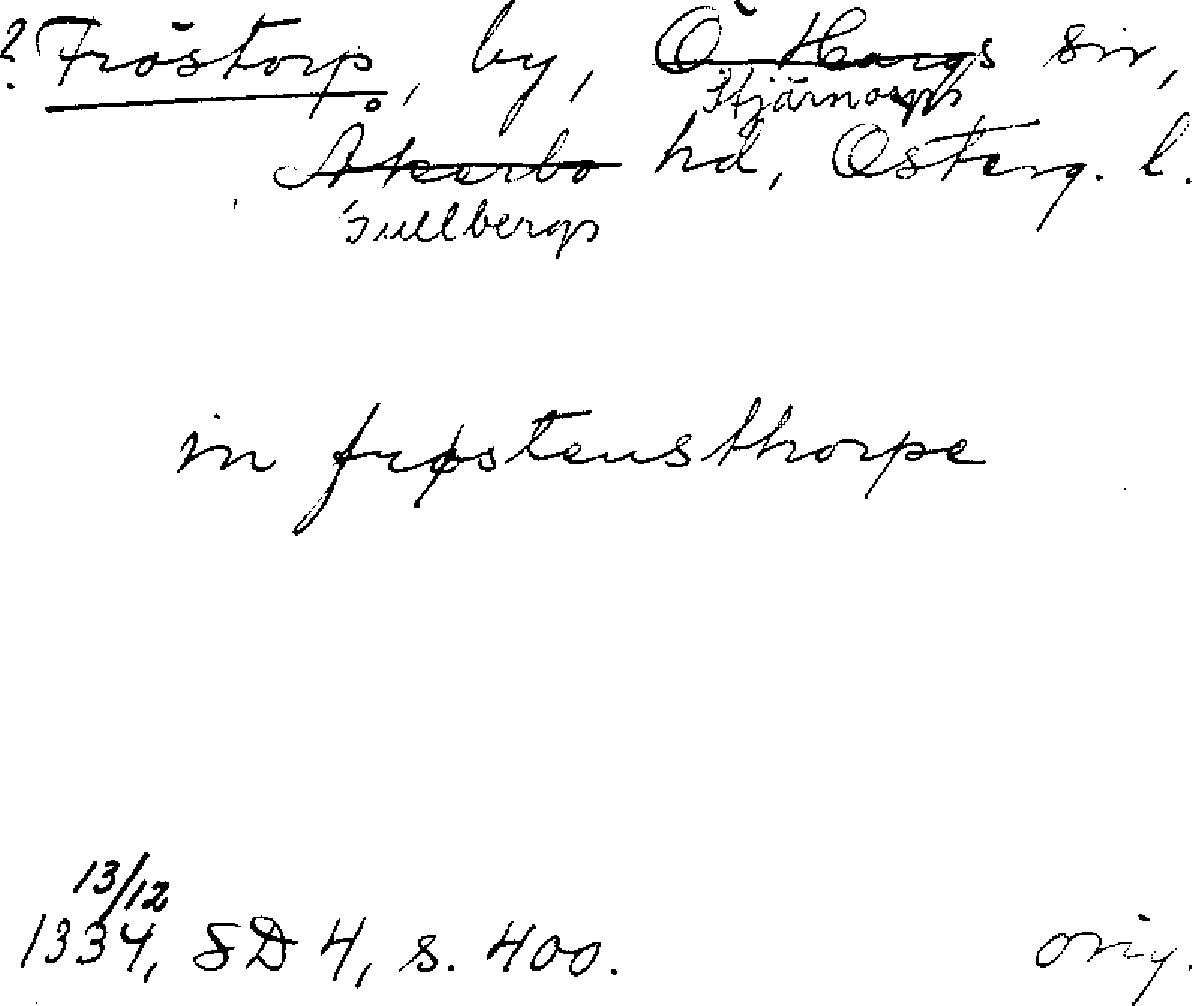 ? Fröstorp, by, Ö Hargs sn,
Stjärnorps
Åkerbo hd, Österg. l.
Gullbergs
in frøstensthorpe
13/12
1334, SD 4, s. 400.
orig.